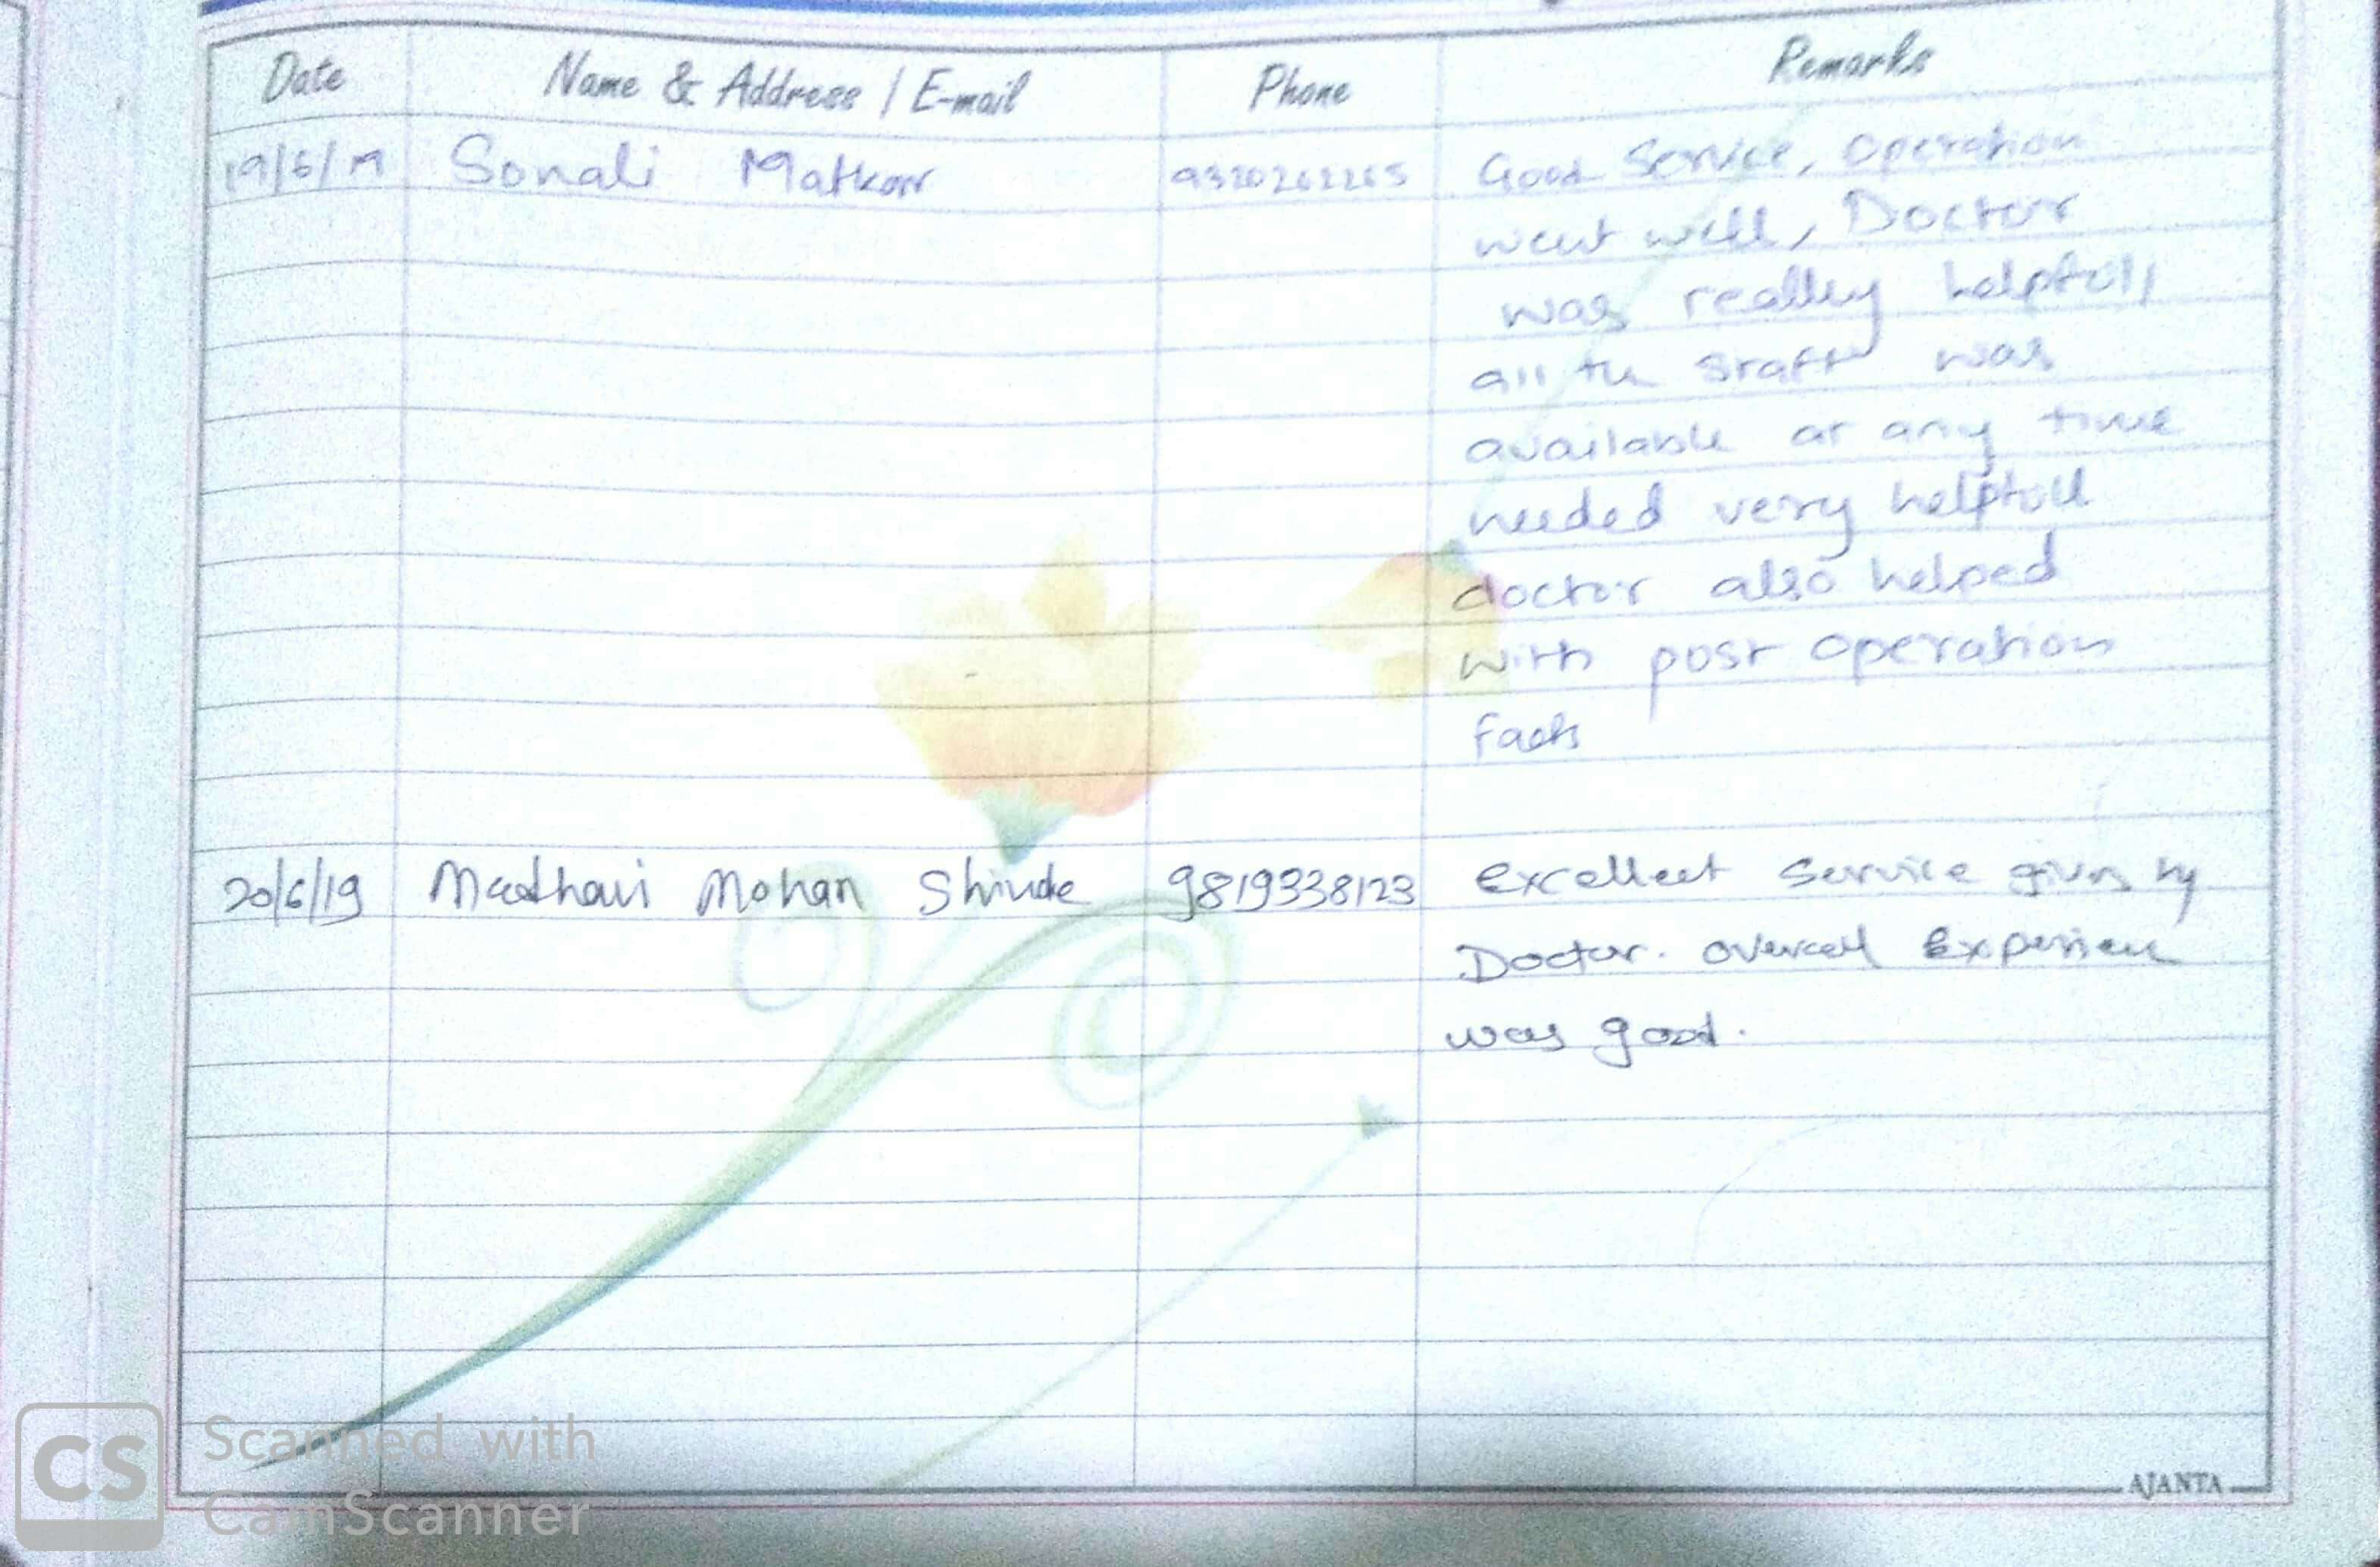 Date Name & Address / E-mail Phone Remarks
19/6/19 Sonali Matkar Good Service, Operation
went well, Doctor
was really helpfull,
all the staff was
available at any time
needed very helpfull
doctor also helped
with post operation
facts
20/6/19 Madhavi Mohan Shinde 9819338123 excellent service given by
Doctor. overall Experience
was good.
AJANTA
CS Scanned with
CamScanner